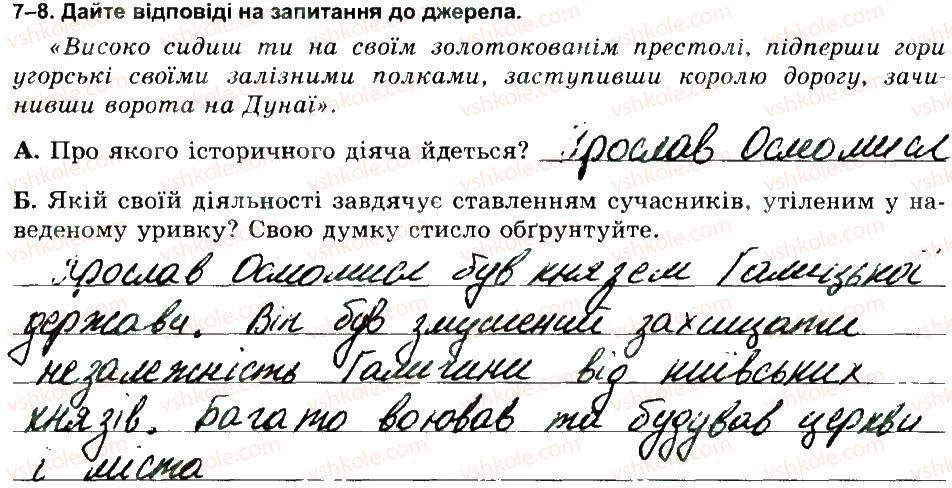 7–8. Дайте відповіді на запитання до джерела.
«Високо сидиш ти на своїм золотокованім престолі, підперши гори
угорські своїми залізними полками, заступивши королю дорогу, зачи-
нивши ворота на Дунаї».
А. Про якого історичного діяча йдеться? Ярослав Осмомисл
Б. Якій своїй діяльності завдячує ставленням сучасників, утіленим у на-
веденому уривку? Свою думку стисло обґрунтуйте.
Ярослав Осмомисл був князем Галицької
держави. Він був змушений захищати
незалежність Галичини від київських
князів. Багато воював та будував церкви
і міста